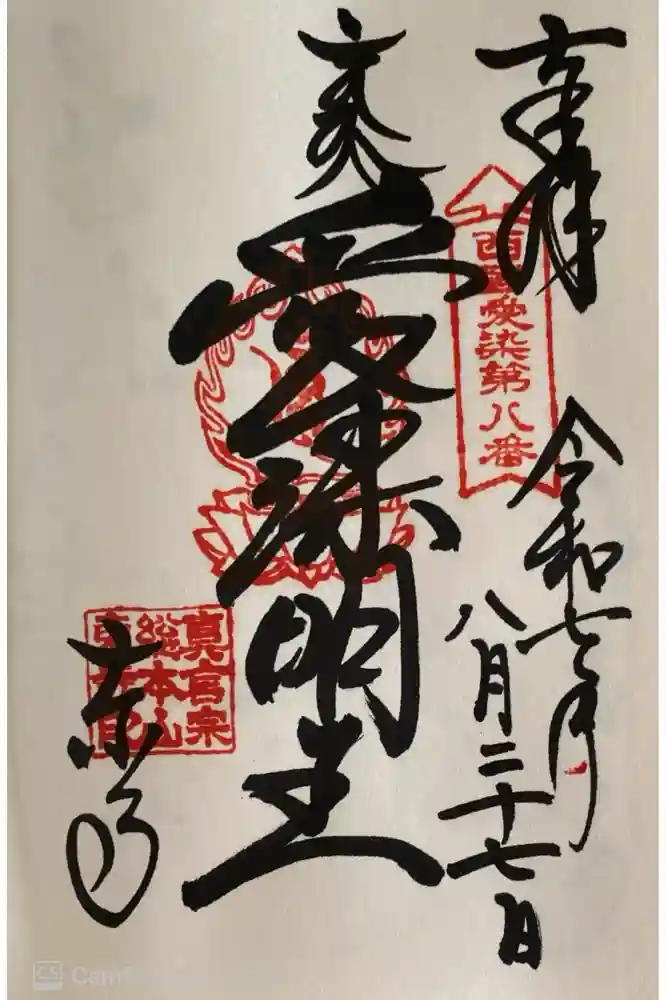 奉拝
西国愛染第八番
令和七年
八月二十七日
愛染明王
真言宗
総本山
東寺
CamS